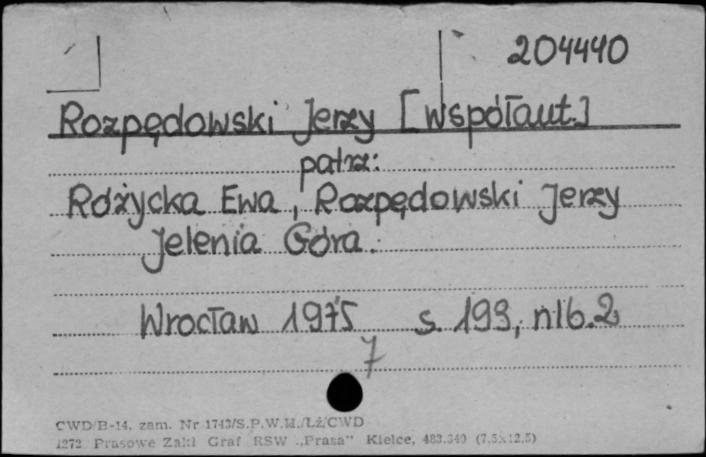 204440
Rozpędowski Jerzy [Współaut.]
patrz:
Różycka Ewa, Rozpędowski Jerzy
Jelenia Góra.
Wrocław 1975 s. 193, nlb. 2
7
CWD/B-14. zam. Nr 1743/S.P.W.H./Lż/CWD
1272 Prasowe Zakł Graf RSW „Prasa” Kielce, 483.340 (7,5x12,5)